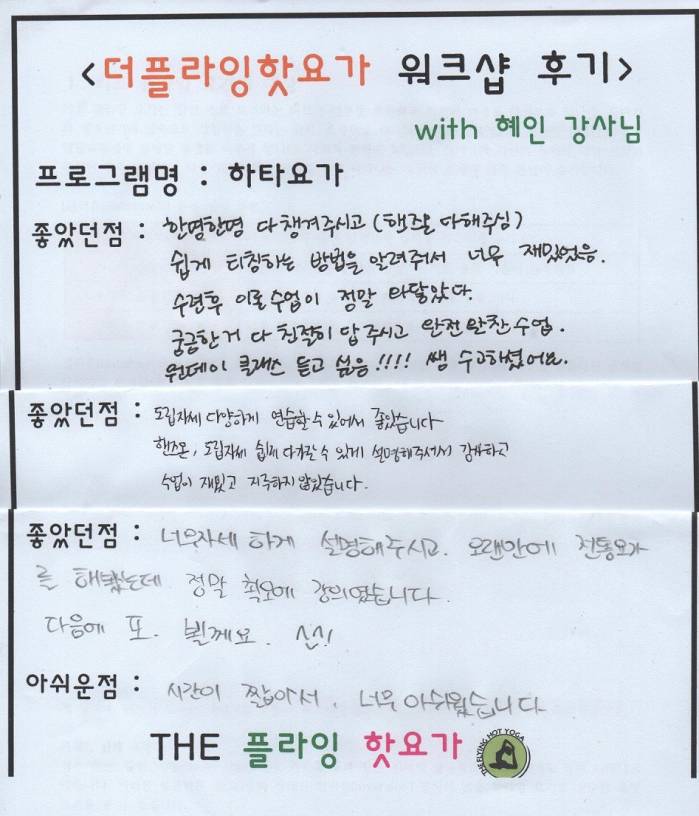 <더플라잉핫요가 워크샵 후기>
with 혜인 강사님
프로그램명 : 하타요가
좋았던점 : 한명한명 다 챙겨주시고 (핸즈온 다해주심)
쉽게 티칭하는 방법을 알려줘서 너무 재밌었음.
수련후 이론수업이 정말 와닿았다.
궁금한거 다 친절히 답주시고 완전알찬수업.
원데이 클래스 듣고 싶음!!!! 쌤 수고하셨어요.
좋았던점 : 도립자세 다양하게 연습할 수 있어서 좋았습니다
핸즈온, 도립자세 쉽게 다가갈 수 있게 설명해주셔서 감사하고
수업이 재밌고 지루하지 않았습니다.
좋았던점 : 너무자세 하게 설명해주시고. 오랜만에 전통요가
를 해봤는데 정말 최고에 강의였습니다.
다음에 또. 뵐께요.
아쉬운점 : 시간이 짧아서. 너무 아쉬웠습니다
THE 플라잉 핫요가
THE FLYING HOT YOGA